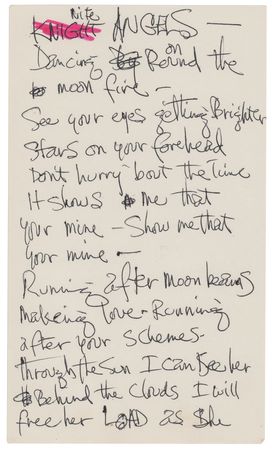 Nite
KNIGHT ANGELS —
Dancing on Round the
moon fire —
See your eyes getting Brighter
Stars on your forehead
Don't hurry 'bout the Time
It shows me that
your mine – Show me that
your mine —
Running after Moon beams
Makeing love - Running
after your schemes -
through the Sun I can see her
Behind the Clouds I will
free her as She